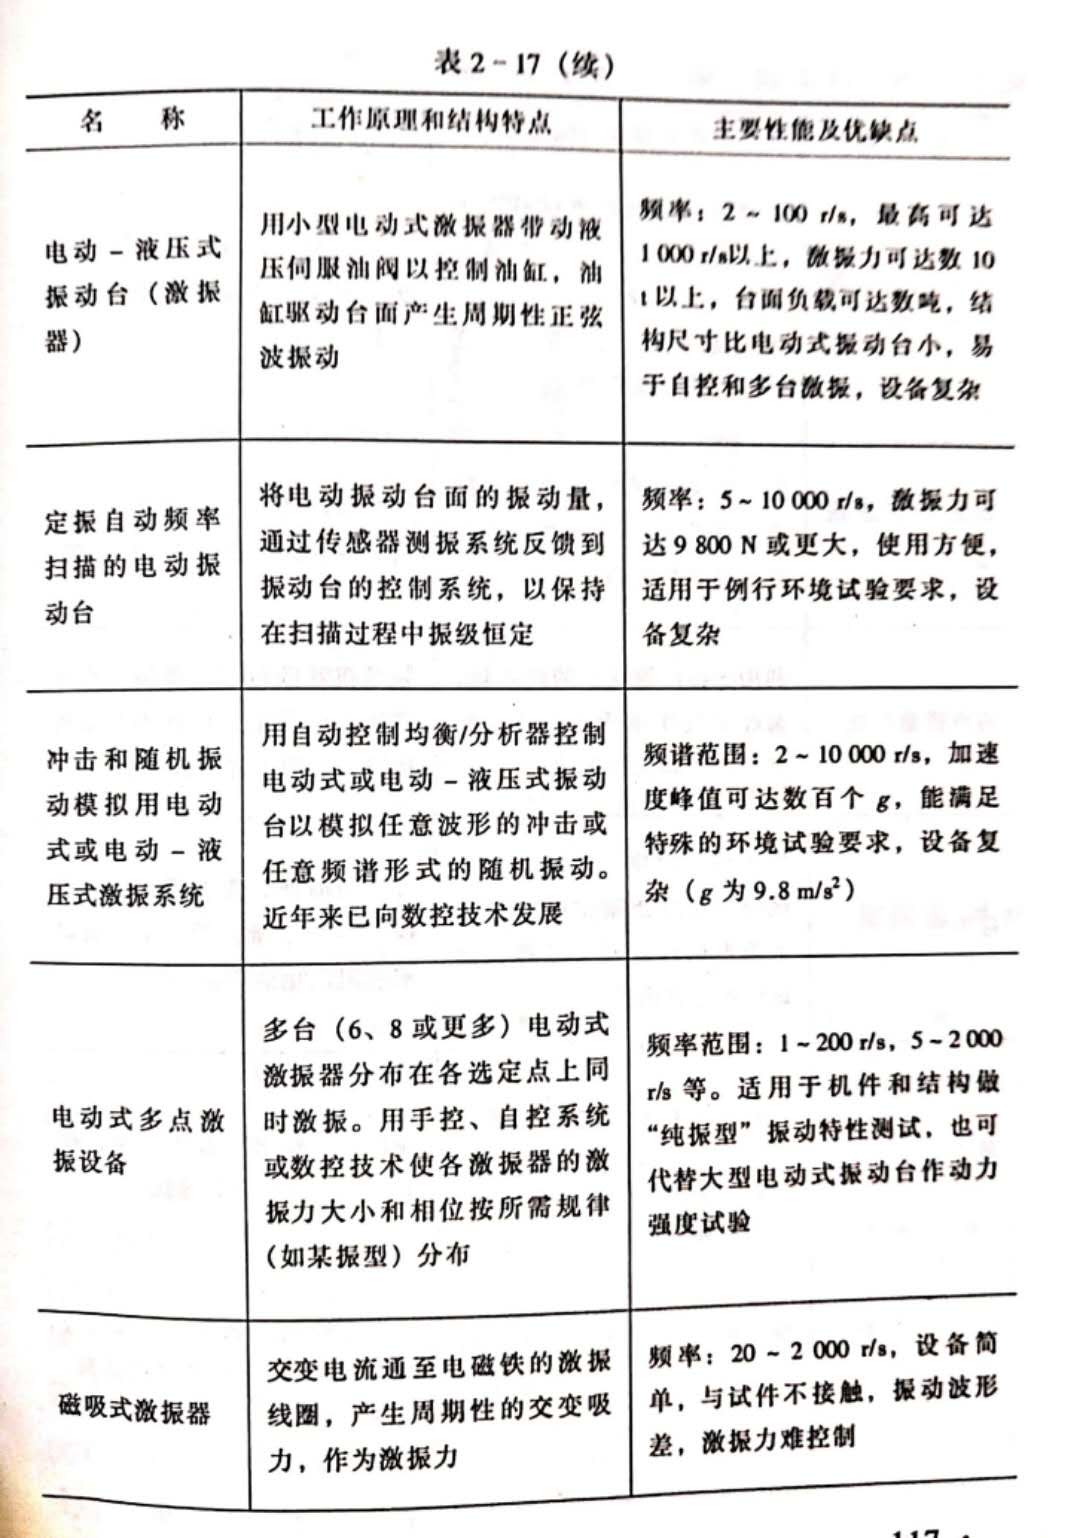 表2-17（续）
名 称
工作原理和结构特点
主要性能及优缺点
电动-液压式
振动台（激振
器）
用小型电动式激振器带动液
压伺服油阀以控制油缸，油
缸驱动台面产生周期性正弦
波振动
频率：2~100 r/s，最高可达
1 000 r/s以上，激振力可达数10
t以上，台面负载可达数吨，结
构尺寸比电动式振动台小，易
于自控和多台激振，设备复杂
定振自动频率
扫描的电动振
动台
将电动振动台面的振动量，
通过传感器测振系统反馈到
振动台的控制系统，以保持
在扫描过程中振级恒定
频率：5~10 000 r/s，激振力可
达9 800 N或更大，使用方便，
适用于例行环境试验要求，设
备复杂
冲击和随机振
动模拟用电动
式或电动-液
压式激振系统
用自动控制均衡/分析器控制
电动式或电动-液压式振动
台以模拟任意波形的冲击或
任意频谱形式的随机振动。
近年来已向数控技术发展
频谱范围：2~10 000 r/s，加速
度峰值可达数百个g，能满足
特殊的环境试验要求，设备复
杂（g为9.8 m/s²）
电动式多点激
振设备
多台（6、8或更多）电动式
激振器分布在各选定点上同
时激振。用手控、自控系统
或数控技术使各激振器的激
振力大小和相位按所需规律
（如某振型）分布
频率范围：1~200 r/s，5~2 000
r/s等。适用于机件和结构做
“纯振型”振动特性测试，也可
代替大型电动式振动台作动力
强度试验
磁吸式激振器
交变电流通至电磁铁的激振
线圈，产生周期性的交变吸
力，作为激振力
频率：20~2 000 r/s，设备简
单，与试件不接触，振动波形
差，激振力难控制
117